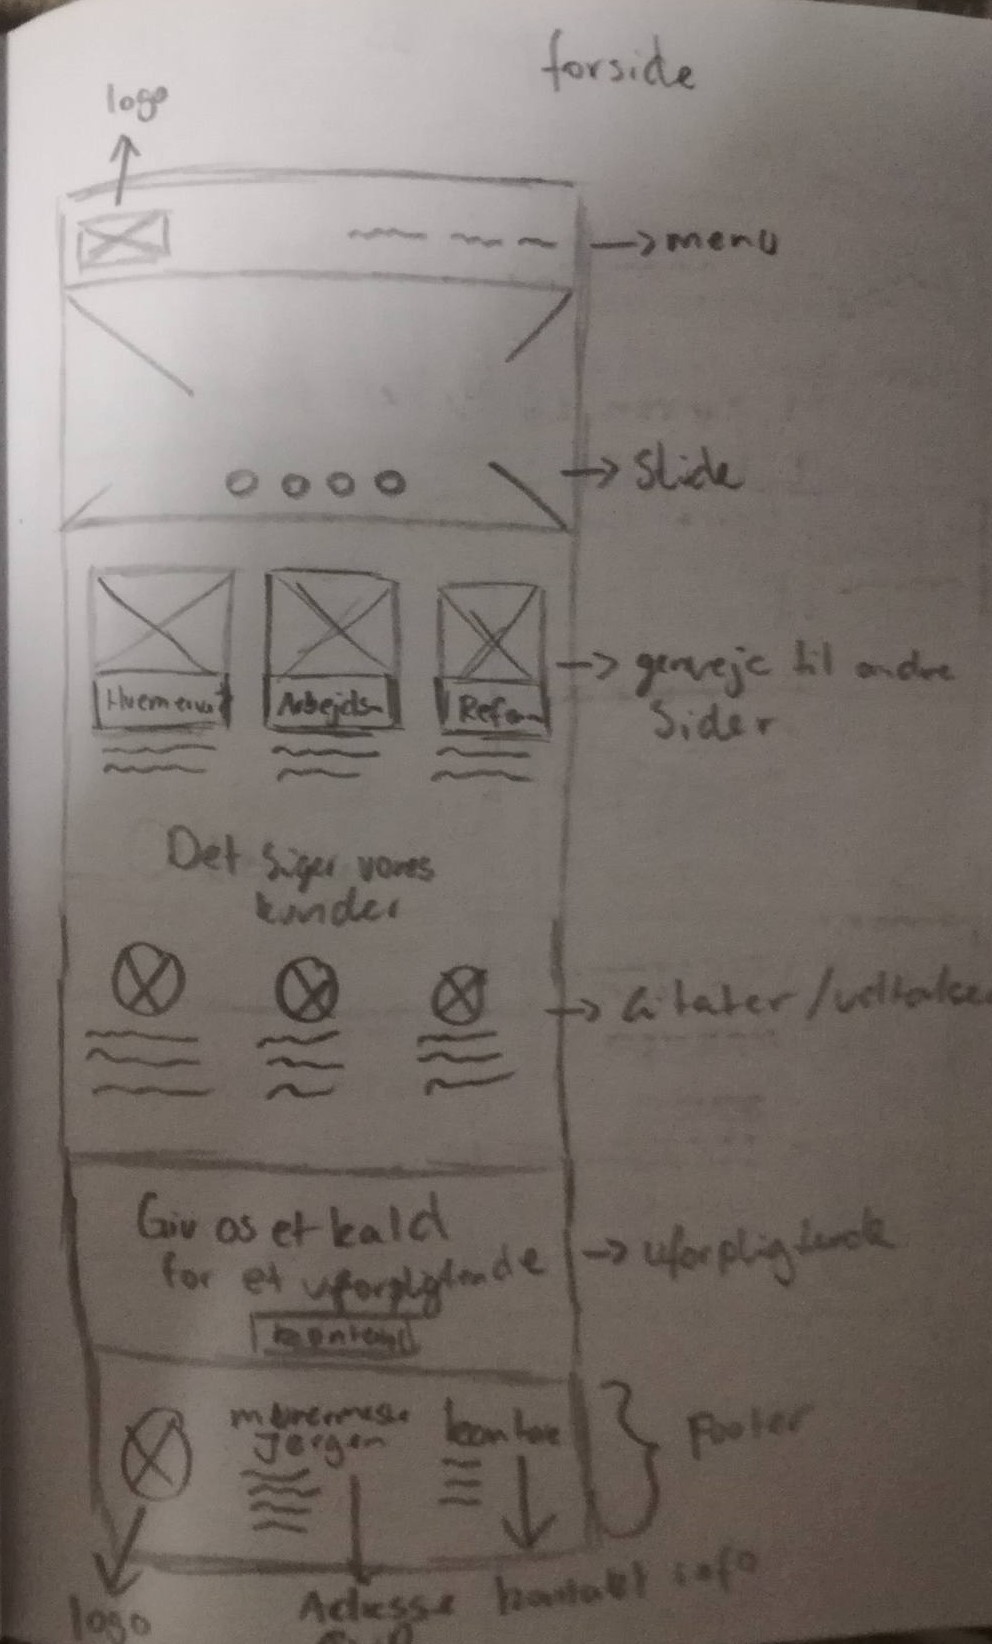 forside
logo
menu
Slide
Arbejds
Refe
genveje til andre
Sider
Det siger vores
kunder
Citater /udtalelse
Giv os et kald
for et uforpligtende
uforpligtende
murermester
Jørgen
Footer
logo
Adresse
kontakt info